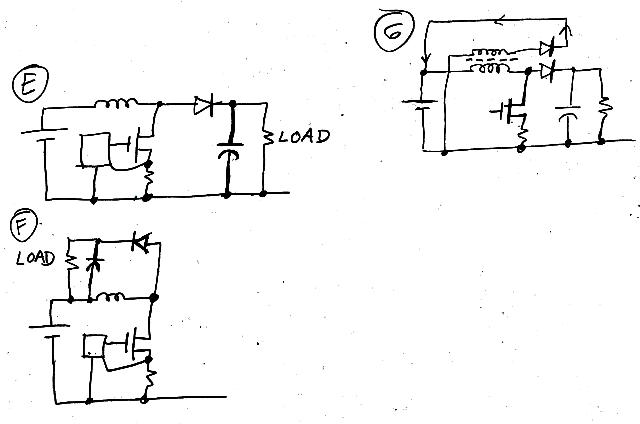 E
LOAD
F
LOAD
G